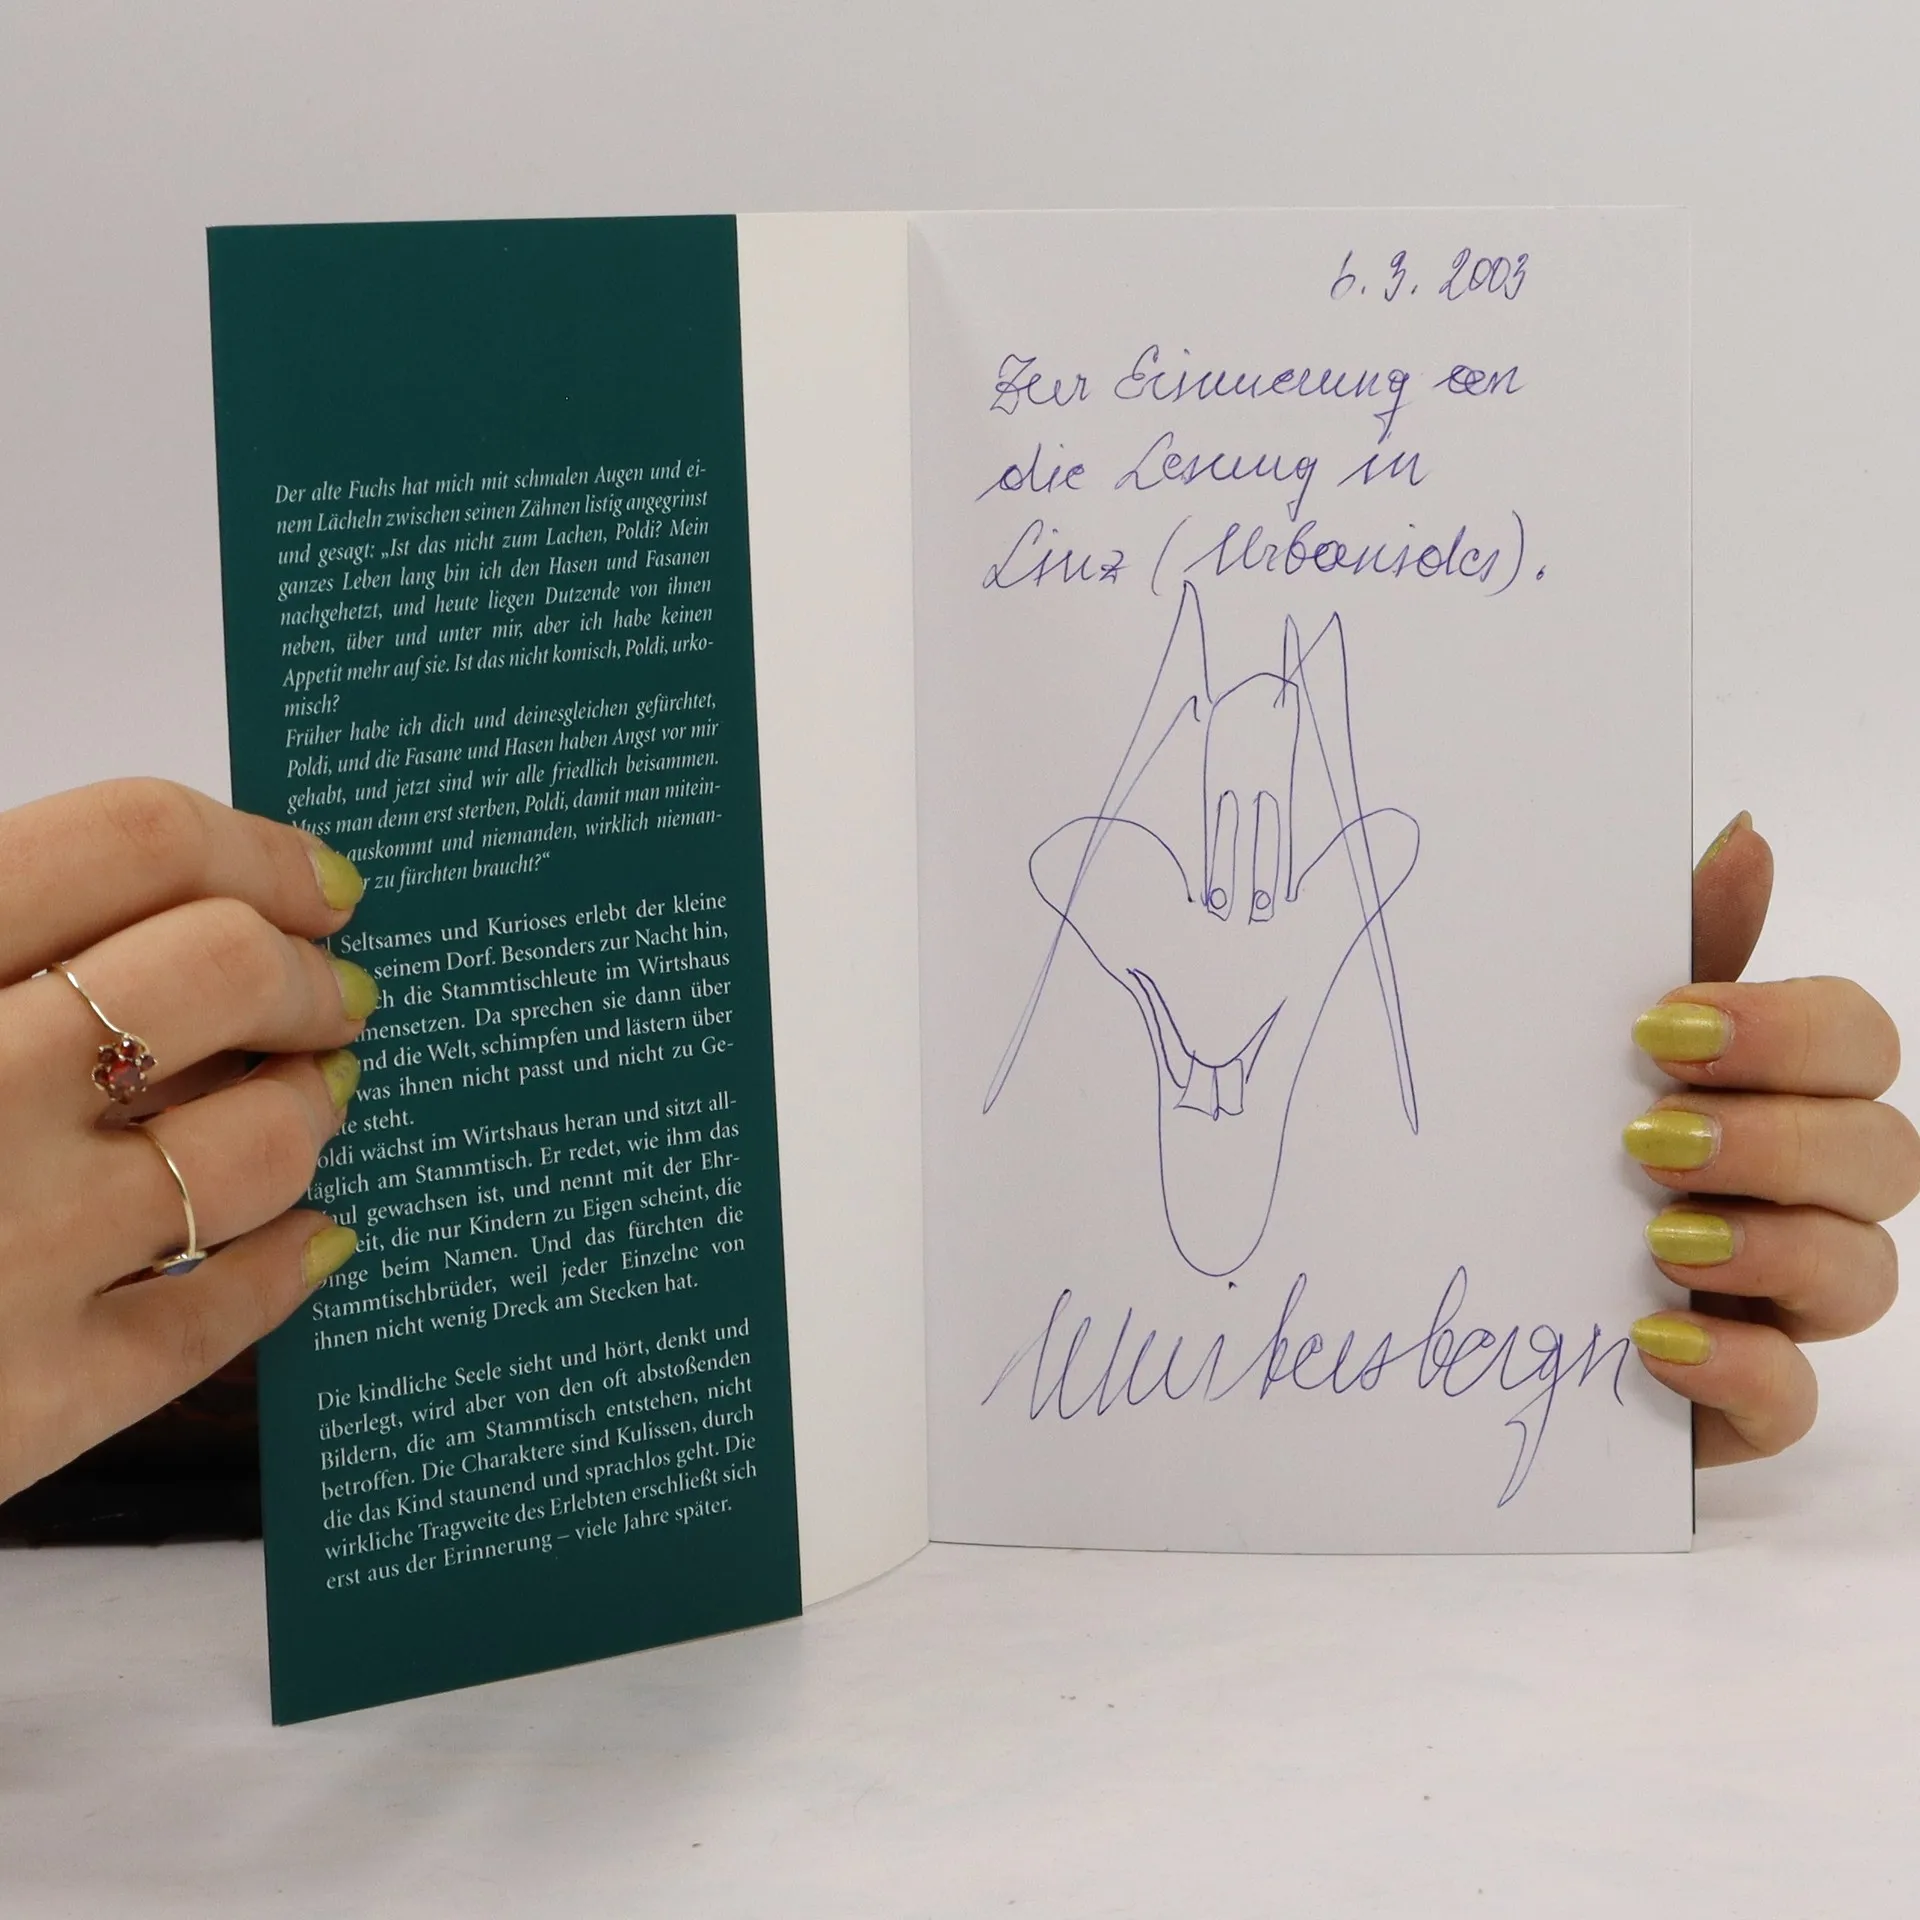 Der alte Fuchs hat mich mit schmalen Augen und ei-
nem Lächeln zwischen seinen Zähnen listig angegrinst
und gesagt: „Ist das nicht zum Lachen, Poldi? Mein
ganzes Leben lang bin ich den Hasen und Fasanen
nachgehetzt, und heute liegen Dutzende von ihnen
neben, über und unter mir, aber ich habe keinen
Appetit mehr auf sie. Ist das nicht komisch, Poldi, urko-
misch?
Früher habe ich dich und deinesgleichen gefürchtet,
Poldi, und die Fasane und Hasen haben Angst vor mir
gehabt, und jetzt sind wir alle friedlich beisammen.
Muss man denn erst sterben, Poldi, damit man mitein-
auskommt und niemanden, wirklich nieman-
zu fürchten braucht?“
Seltsames und Kurioses erlebt der kleine
seinem Dorf. Besonders zur Nacht hin,
die Stammtischleute im Wirtshaus
Da sprechen sie dann über
und die Welt, schimpfen und lästern über
was ihnen nicht passt und nicht zu Ge-
steht.
Poldi wächst im Wirtshaus heran und sitzt all-
täglich am Stammtisch. Er redet, wie ihm das
gewachsen ist, und nennt mit der Ehr-
die nur Kindern zu Eigen scheint, die
Dinge beim Namen. Und das fürchten die
Stammtischbrüder, weil jeder Einzelne von
ihnen nicht wenig Dreck am Stecken hat.
Die kindliche Seele sieht und hört, denkt und
überlegt, wird aber von den oft abstoßenden
Bildern, die am Stammtisch entstehen, nicht
betroffen. Die Charaktere sind Kulissen, durch
die das Kind staunend und sprachlos geht. Die
wirkliche Tragweite des Erlebten erschließt sich
erst aus der Erinnerung – viele Jahre später.
6. 3. 2003
Zur Erinnerung an
die Lesung in
Linz (Urbanides).